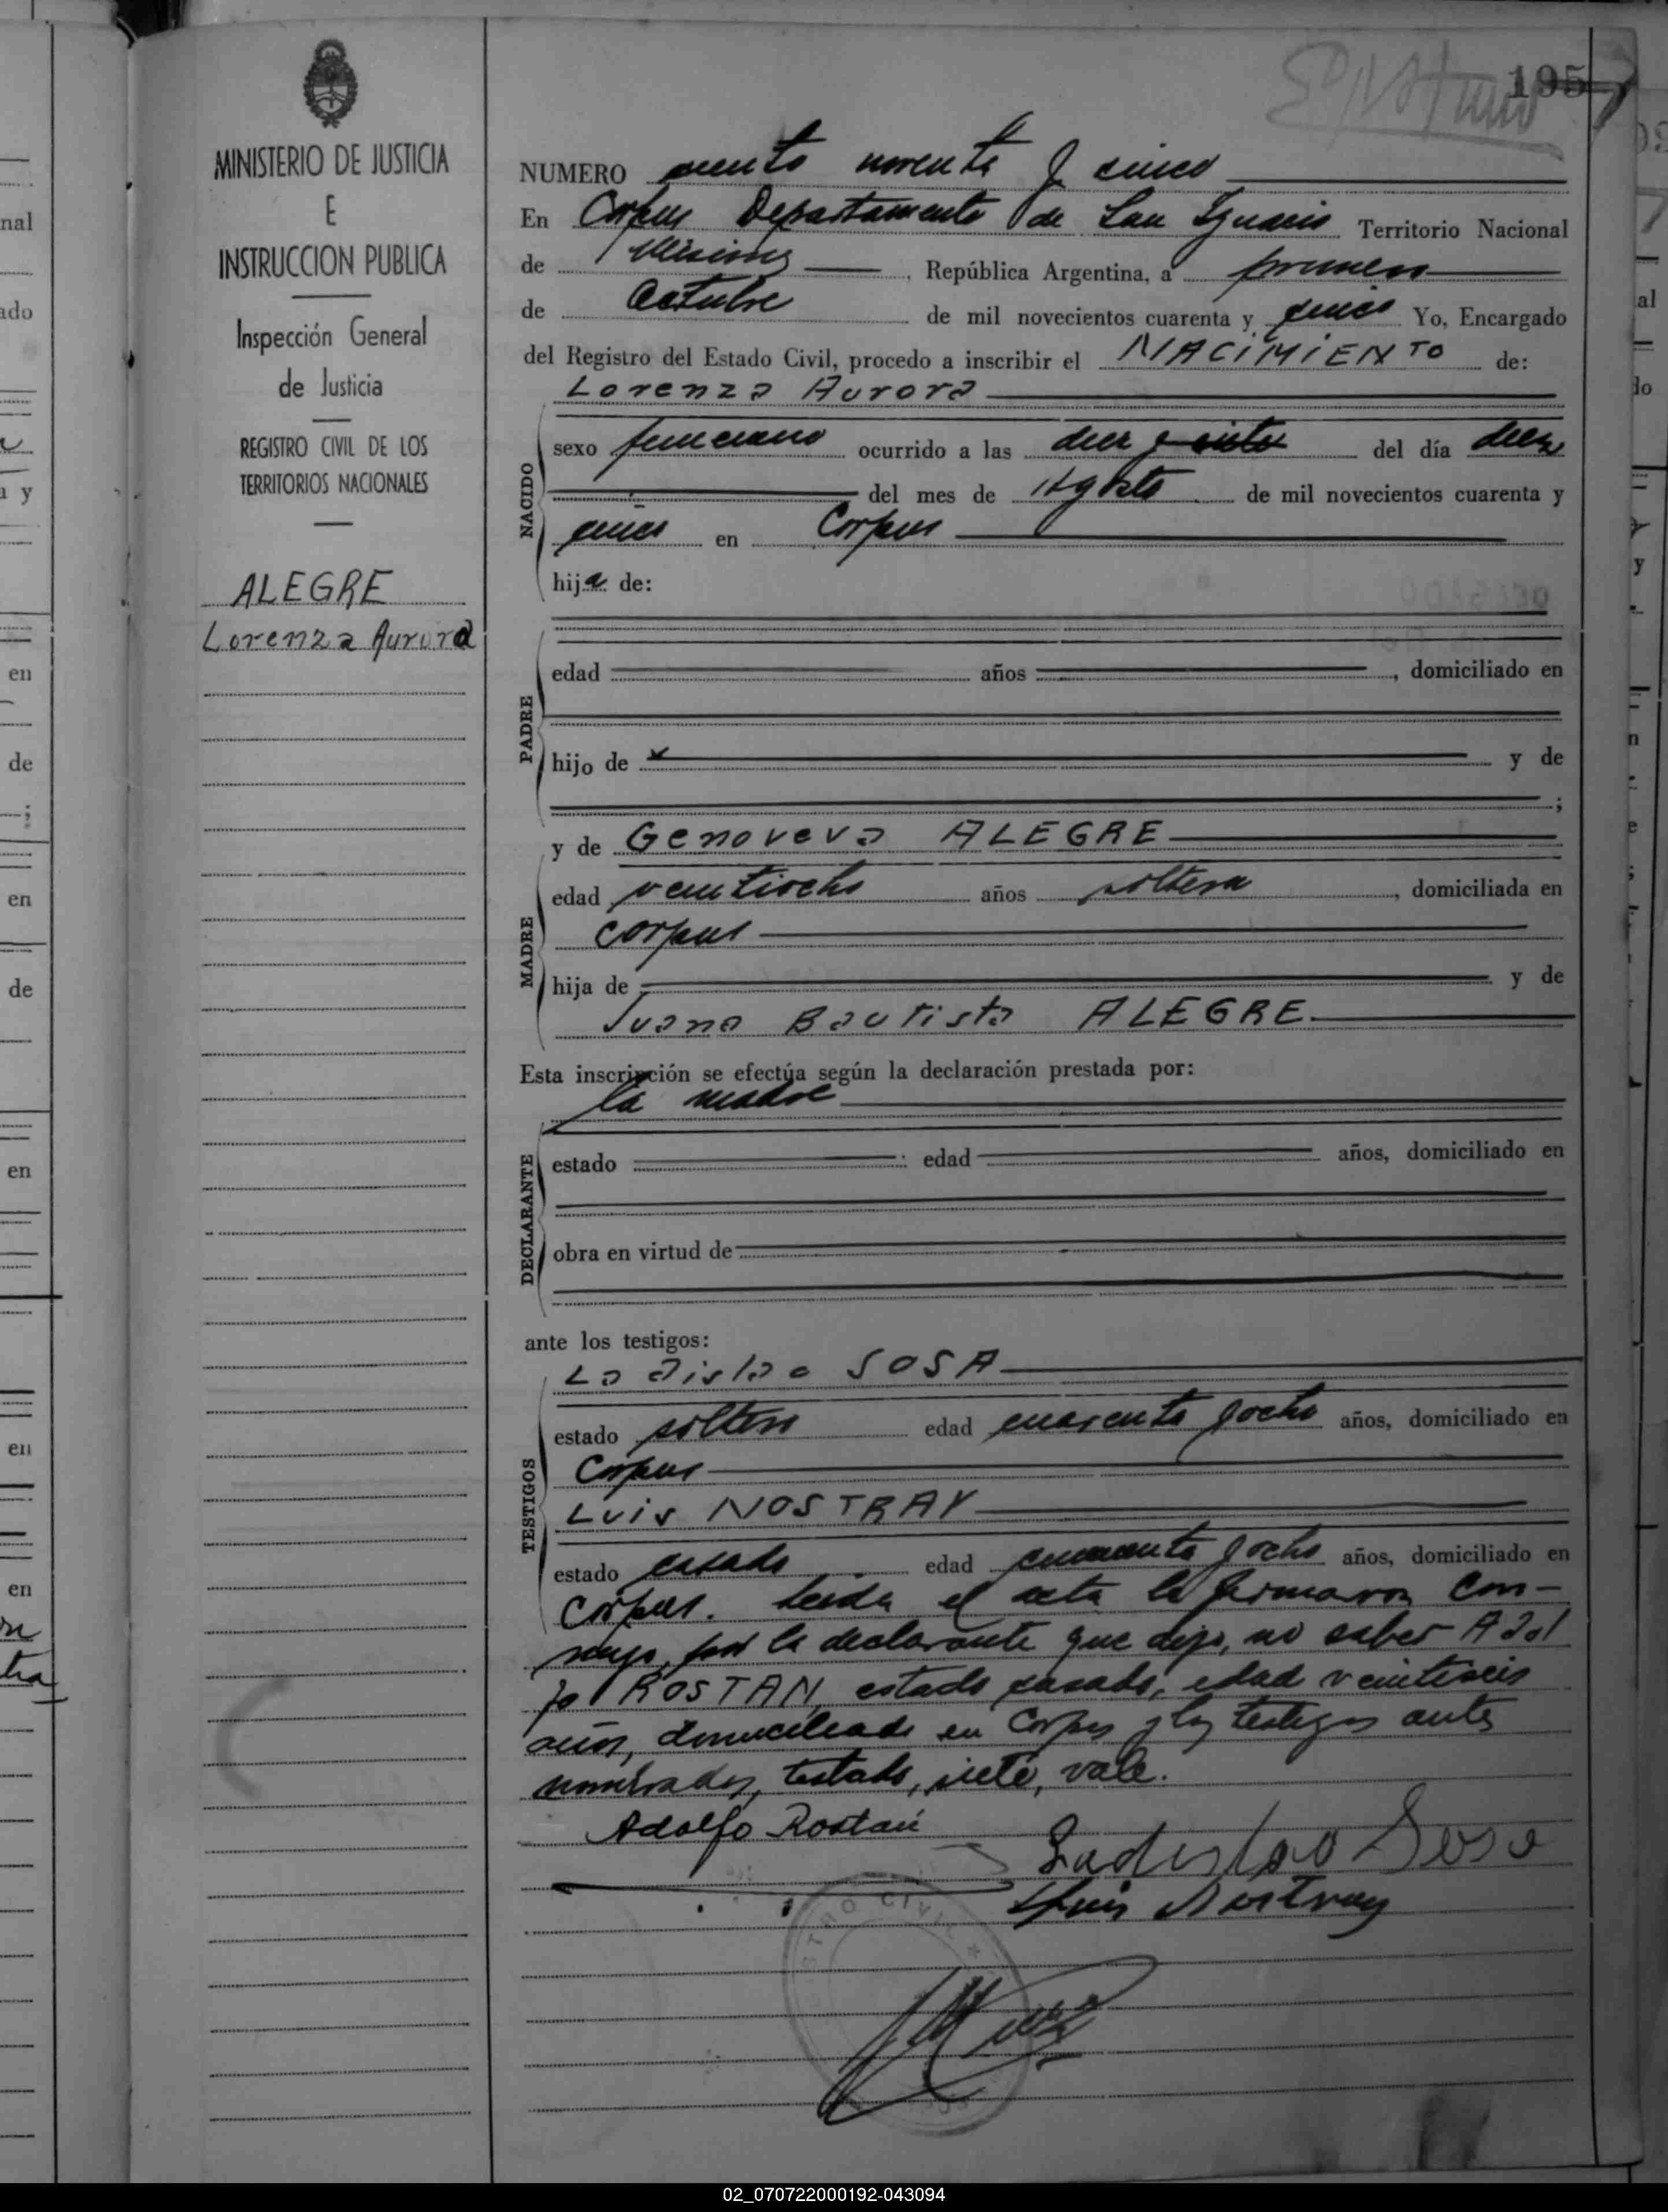 195
MINISTERIO DE JUSTICIA
E
INSTRUCCION PUBLICA
Inspección General
de Justicia
REGISTRO CIVIL DE LOS
TERRITORIOS NACIONALES
ALEGRE
Lorenza Aurora
NUMERO ciento noventa y cinco
En Corpus Departamento de San Ignacio Territorio Nacional
de Misiones, República Argentina, a primero
de Octubre de mil novecientos cuarenta y cinco Yo, Encargado
del Registro del Estado Civil, procedo a inscribir el NACIMIENTO de:
Lorenza Aurora
NACIDO
sexo femenino ocurrido a las diez y siete del día diez
del mes de Agosto de mil novecientos cuarenta y
cinco en Corpus
hija de:
PADRE
edad años , domiciliado en
hijo de y de
;
y de Genoveva ALEGRE
MADRE
edad veintiocho años soltera, domiciliada en
Corpus
hija de y de
Juana Bautista ALEGRE
Esta inscripción se efectúa según la declaración prestada por:
la madre
DECLARANTE
estado edad años, domiciliado en
obra en virtud de
ante los testigos:
Ladislao SOSA
TESTIGOS
estado soltero edad cuarenta y ocho años, domiciliado en
Corpus
Luis NOSTRAY
estado casado edad cuarenta y ocho años, domiciliado en
Corpus. Leida el acta la firmaron con-
migo, por la declarante que dijo, no saber Adol
fo ROSTAN, estado casado, edad veintiseis
años, domiciliado en Corpus y los testigos antes
nombrados, testado, siete, vale.
Adolfo Rostan
Ladislao Sosa
Luis Nostray
CIVIL
02_070722000192-043094